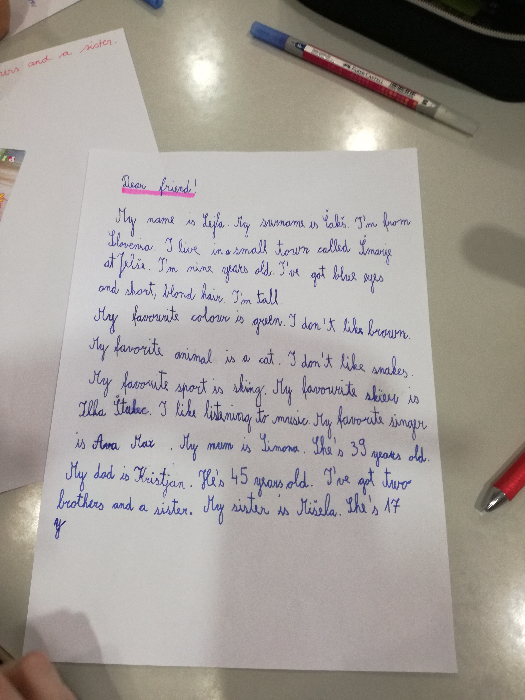 ers and a sister.
Dear friend!
My name is Lejfa. My surname is Čakš. I'm from
Slovenia. I live in a small town called Šmarje
at Jelše. I'm nine years old. I've got blue eyes
and short, blond hair. I'm tall
My favourite colour is green. I don't like brown.
My favorite animal is a cat. I don't like snakes.
My favourite sport is skiing. My favourite skier is
Ilka Štuhec. I like listening to music My favorite singer
is Ava Max . My mum is Simona. She's 39 years old.
My dad is Kristjan. He's 45 years old. I've got two
brothers and a sister. My sister is Mišela. She's 17
y